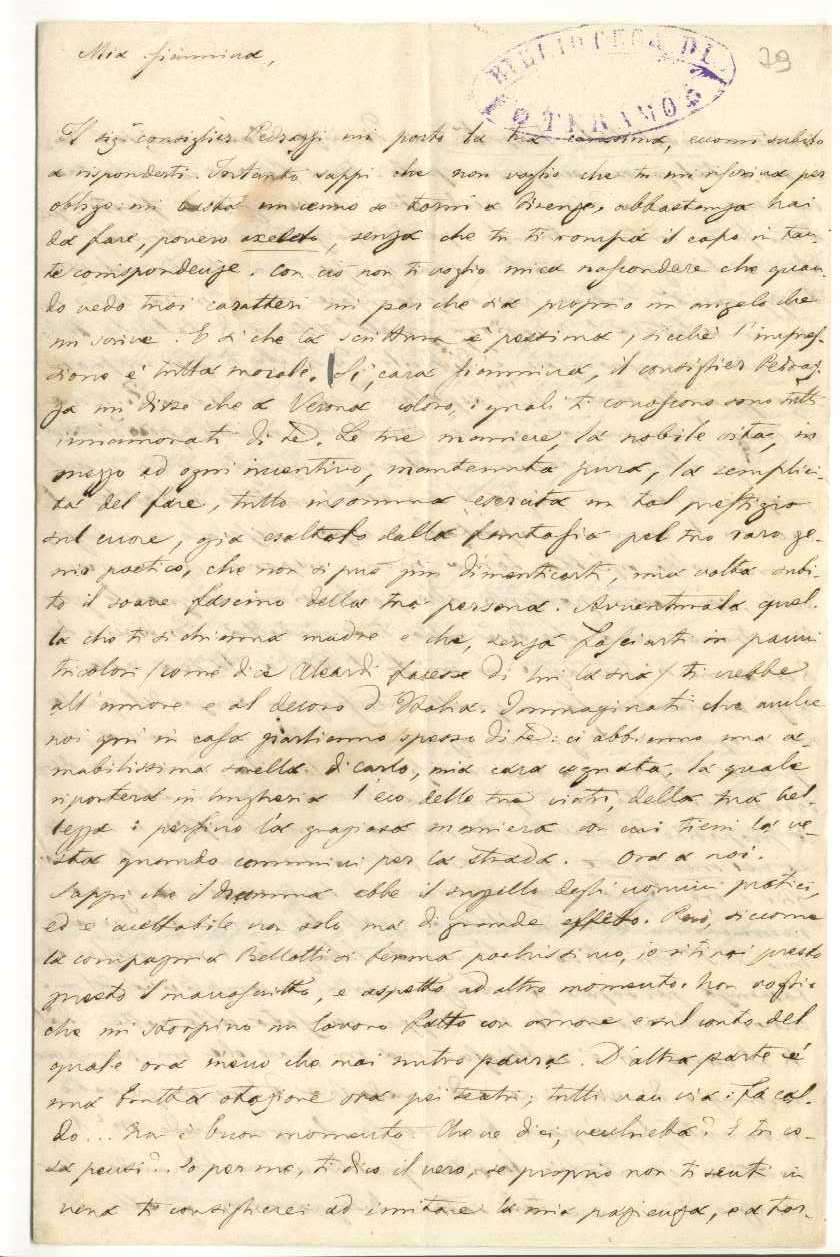 Mia Giannina,
BIBLIOTECA DI
TERAMO
29
Il sigr consiglier Pedrazzi mi portò la tua carissima, eccomi subito
a risponderti. Portanto sappi che non voglio che tu mi riscriva per
obbligo: mi basta un cenno se torni a Firenze. abbastanza hai
da fare, povero , senza che tu ti rompa il capo in tan-
te corrispondenze. Con ciò non ti voglio mica nascondere che quan-
do vedo tuoi caratteri mi par che sia proprio un angelo che
mi scrive. E sì che la scrittura è pessima, sicchè l'impres-
sione è tutta morale. Sì, cara Giannina, il consiglier Pedraz-
za mi disse che a Verona coloro, i quali ti conoscono sono tutti
innamorati di tè. Le tue maniere, la nobile vita, in
mezzo ad ogni incentivo, mantenuta pura, la semplici-
tà del fare, tutto insomma esercita un tal prestigio
sul cuore, già esaltato dalla fantasia pel tuo raro ge-
nio poetico, che non si può più dimenticarti, una volta subi-
to il soave fascino della tua persona. Avventurata quel-
la che ti si chiama madre e che, senza fasciarti in panni
tricolori (come dice Aleardi facesse di lui la sua) ti crebbe
all'amore e al decoro d'Italia. Immaginati che anche
noi qui in casa parliamo spesso di tè: ci abbiamo una a-
mabilissima sorella di Carlo, mia cara cognata, la quale
riporterà in Ungheria l'eco delle tue virtù, della tua bel-
lezza: perfino la graziosa maniera con cui tieni la ve-
sta quando cammini per la strada. – Ora a noi.
Sappi che il Dramma ebbe il suggello degli uomini pratici,
ed è accettabile non solo ma di grande effetto. Però, siccome
la compagnia Bellotti si ferma pochissimo, io ritirai presto
presto il manoscritto, e aspetto ad altro momento. Non voglio
che mi storpino un lavoro fatto con amore e sul conto del
quale ora meno che mai nutro paura. D'altra parte è
una brutta stagione ora pei teatri; tutti van via: fa cal-
do... Non è buon momento. Che ne dici, vecchietta? E tu co-
sa pensi? Io per me, ti dico il vero, se proprio non ti senti in
vena ti consiglierei ad imitare la mia pazienza, e a tor-